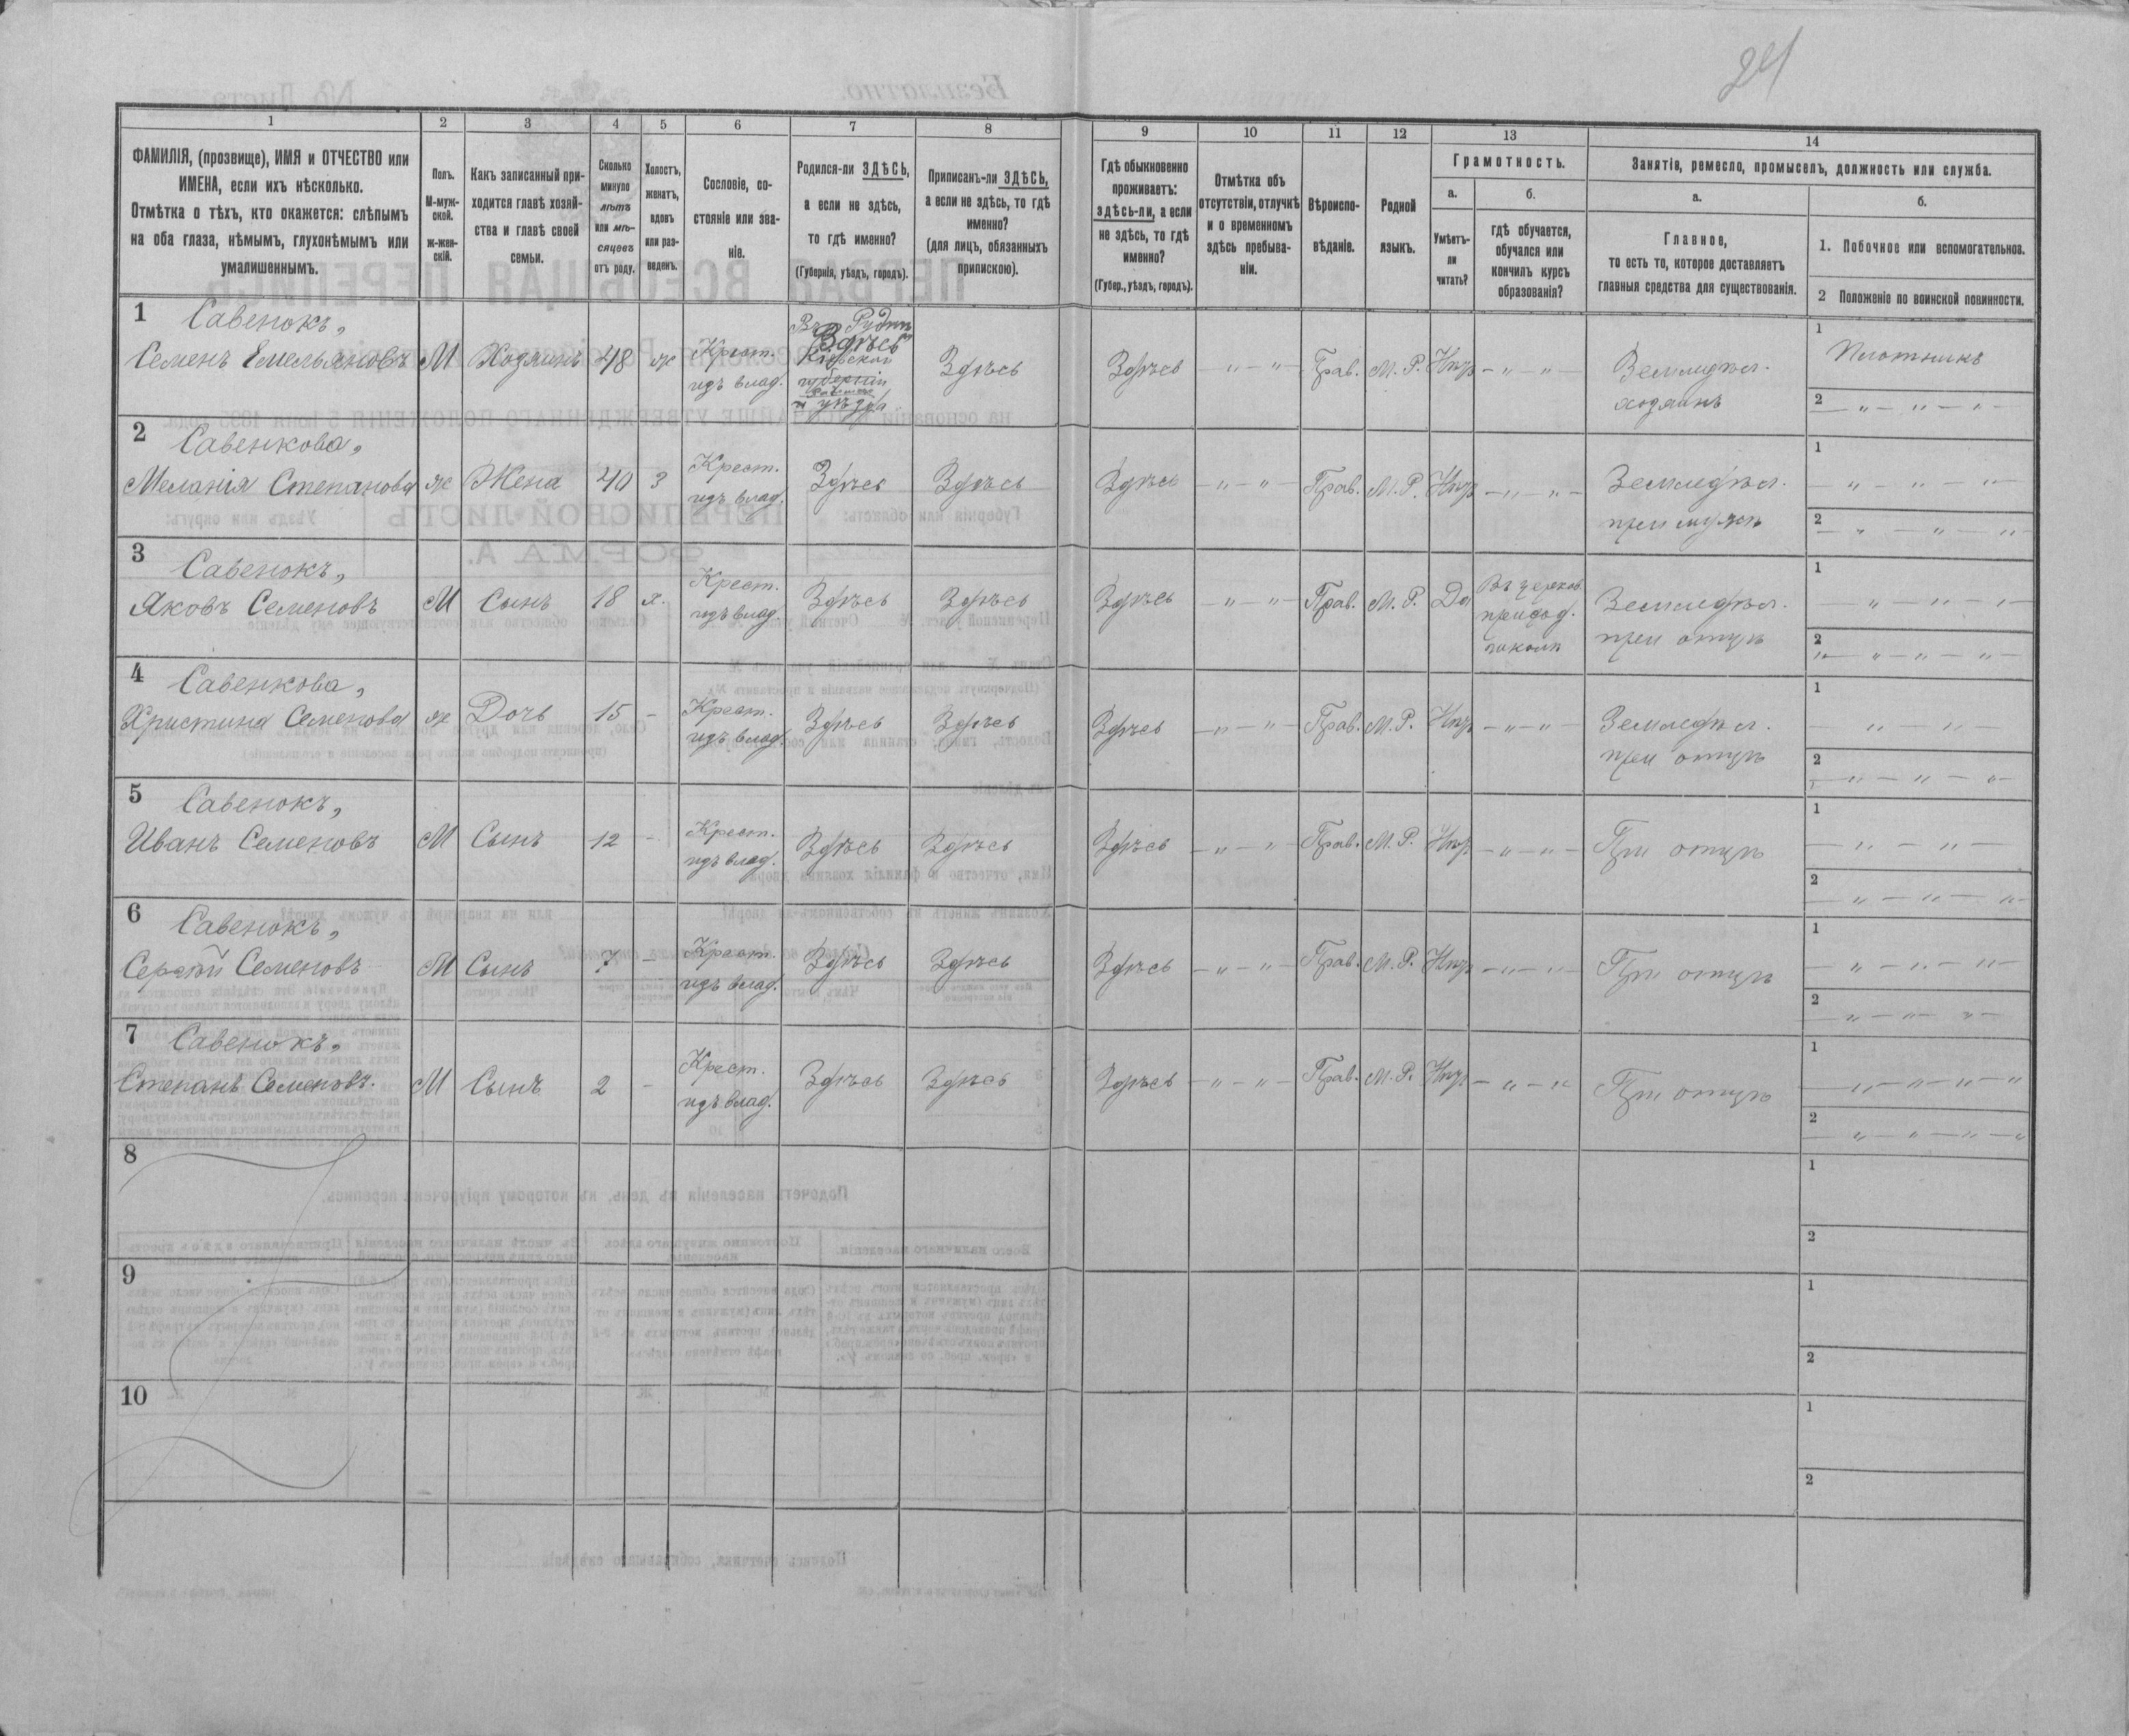 24
1 2 3 4 5 6 7 8 9 10 11 12 13 14
ФАМИЛІЯ, (прозвище), ИМЯ и ОТЧЕСТВО или
ИМЕНА, если ихъ нѣсколько.
Отмѣтка о тѣхъ, кто окажется: слѣпымъ
на оба глаза, нѣмымъ, глухонѣмымъ или
умалишеннымъ.
Полъ.
М-муж-
ской.
ж-жен-
скій.
Какъ записанный при-
ходится главѣ хозяй-
ства и главѣ своей
семьи.
Сколько
минуло
лѣтъ
или мѣ-
сяцевъ
отъ роду.
Холостъ,
женатъ,
вдовъ
или раз-
веденъ.
Сословіе, со-
стояніе или зва-
ніе.
Родился-ли ЗДѢСЬ,
а если не здѣсь,
то гдѣ именно?
(Губернія, уѣздъ, городъ).
Приписанъ-ли ЗДѢСЬ,
а если не здѣсь, то гдѣ
именно?
(для лицъ, обязанныхъ
припискою).
Гдѣ обыкновенно
проживаетъ:
здѣсь-ли, а если
не здѣсь, то гдѣ
именно?
(Губер., уѣздъ, городъ).
Отмѣтка объ
отсутствіи, отлучкѣ
и о временномъ
здѣсь пребыва-
ніи.
Вѣроиспо-
вѣданіе.
Родной
языкъ.
Грамотность.
а.
Умѣетъ-
ли
читать?
б.
гдѣ обучается,
обучался или
кончилъ курсъ
образованія?
Занятіе, ремесло, промыселъ, должность или служба.
а.
Главное,
то есть то, которое доставляетъ
главныя средства для существованія.
б.
1. Побочное или вспомогательное.
2 Положеніе по воинской повинности.
1 Савенокъ,
Семенъ Емельяновъ М Хозяинъ 48 ж Крест. изъ влад.
Здѣсь
Кіевской
губерніи
уѣзда
Здѣсь Здѣсь — " — " — Прав. М. Р. Нѣтъ — " — " — Земледѣл.
хозяинъ
1 Плотникъ
2 — " — " — " —
2 Савенкова,
Меланія Степанова ж Жена 40 з Крест. изъ влад. Здѣсь Здѣсь Здѣсь — " — " — Прав. М. Р. Нѣтъ — " — " — Земледѣл.
при мужѣ
1 — " — " — "
2 — " — " — "
3 Савенокъ,
Яковъ Семеновъ М Сынъ 18 х. Крест. изъ влад. Здѣсь Здѣсь Здѣсь — " — " — Прав. М. Р. Да Въ церков.
приход.
школѣ
Земледѣл.
при отцѣ
1 — " — " — "
2 " — " — " — " —
4 Савенкова,
Христина Семенова ж Дочь 15 - Крест. изъ влад. Здѣсь Здѣсь Здѣсь — " — " — Прав. М. Р. Нѣтъ — " — " — Земледѣл.
при отцѣ
1 — " — " —
2 — " — " — " —
5 Савенокъ,
Иванъ Семеновъ М Сынъ 12 - Крест. изъ влад. Здѣсь Здѣсь Здѣсь — " — " Прав. М. Р. Нѣтъ — " — " — При отцѣ
1 — " — " —
2 — " — " — " —
6 Савенокъ,
Сергѣй Семеновъ М Сынъ 7 - Крест. изъ влад. Здѣсь Здѣсь Здѣсь — " — " — Прав. М. Р. Нѣтъ — " — " — При отцѣ
1 — " — " — " —
2 — " — " — " —
7 Савенокъ,
Степанъ Семеновъ. М Сынъ 2 - Крест. изъ влад. Здѣсь Здѣсь Здѣсь — " — " — Прав. М. Р. Нѣтъ — " — " При отцѣ
1 — " — " — " — "
2 — " — " — " — "
8
1
2
9
1
2
10
1
2